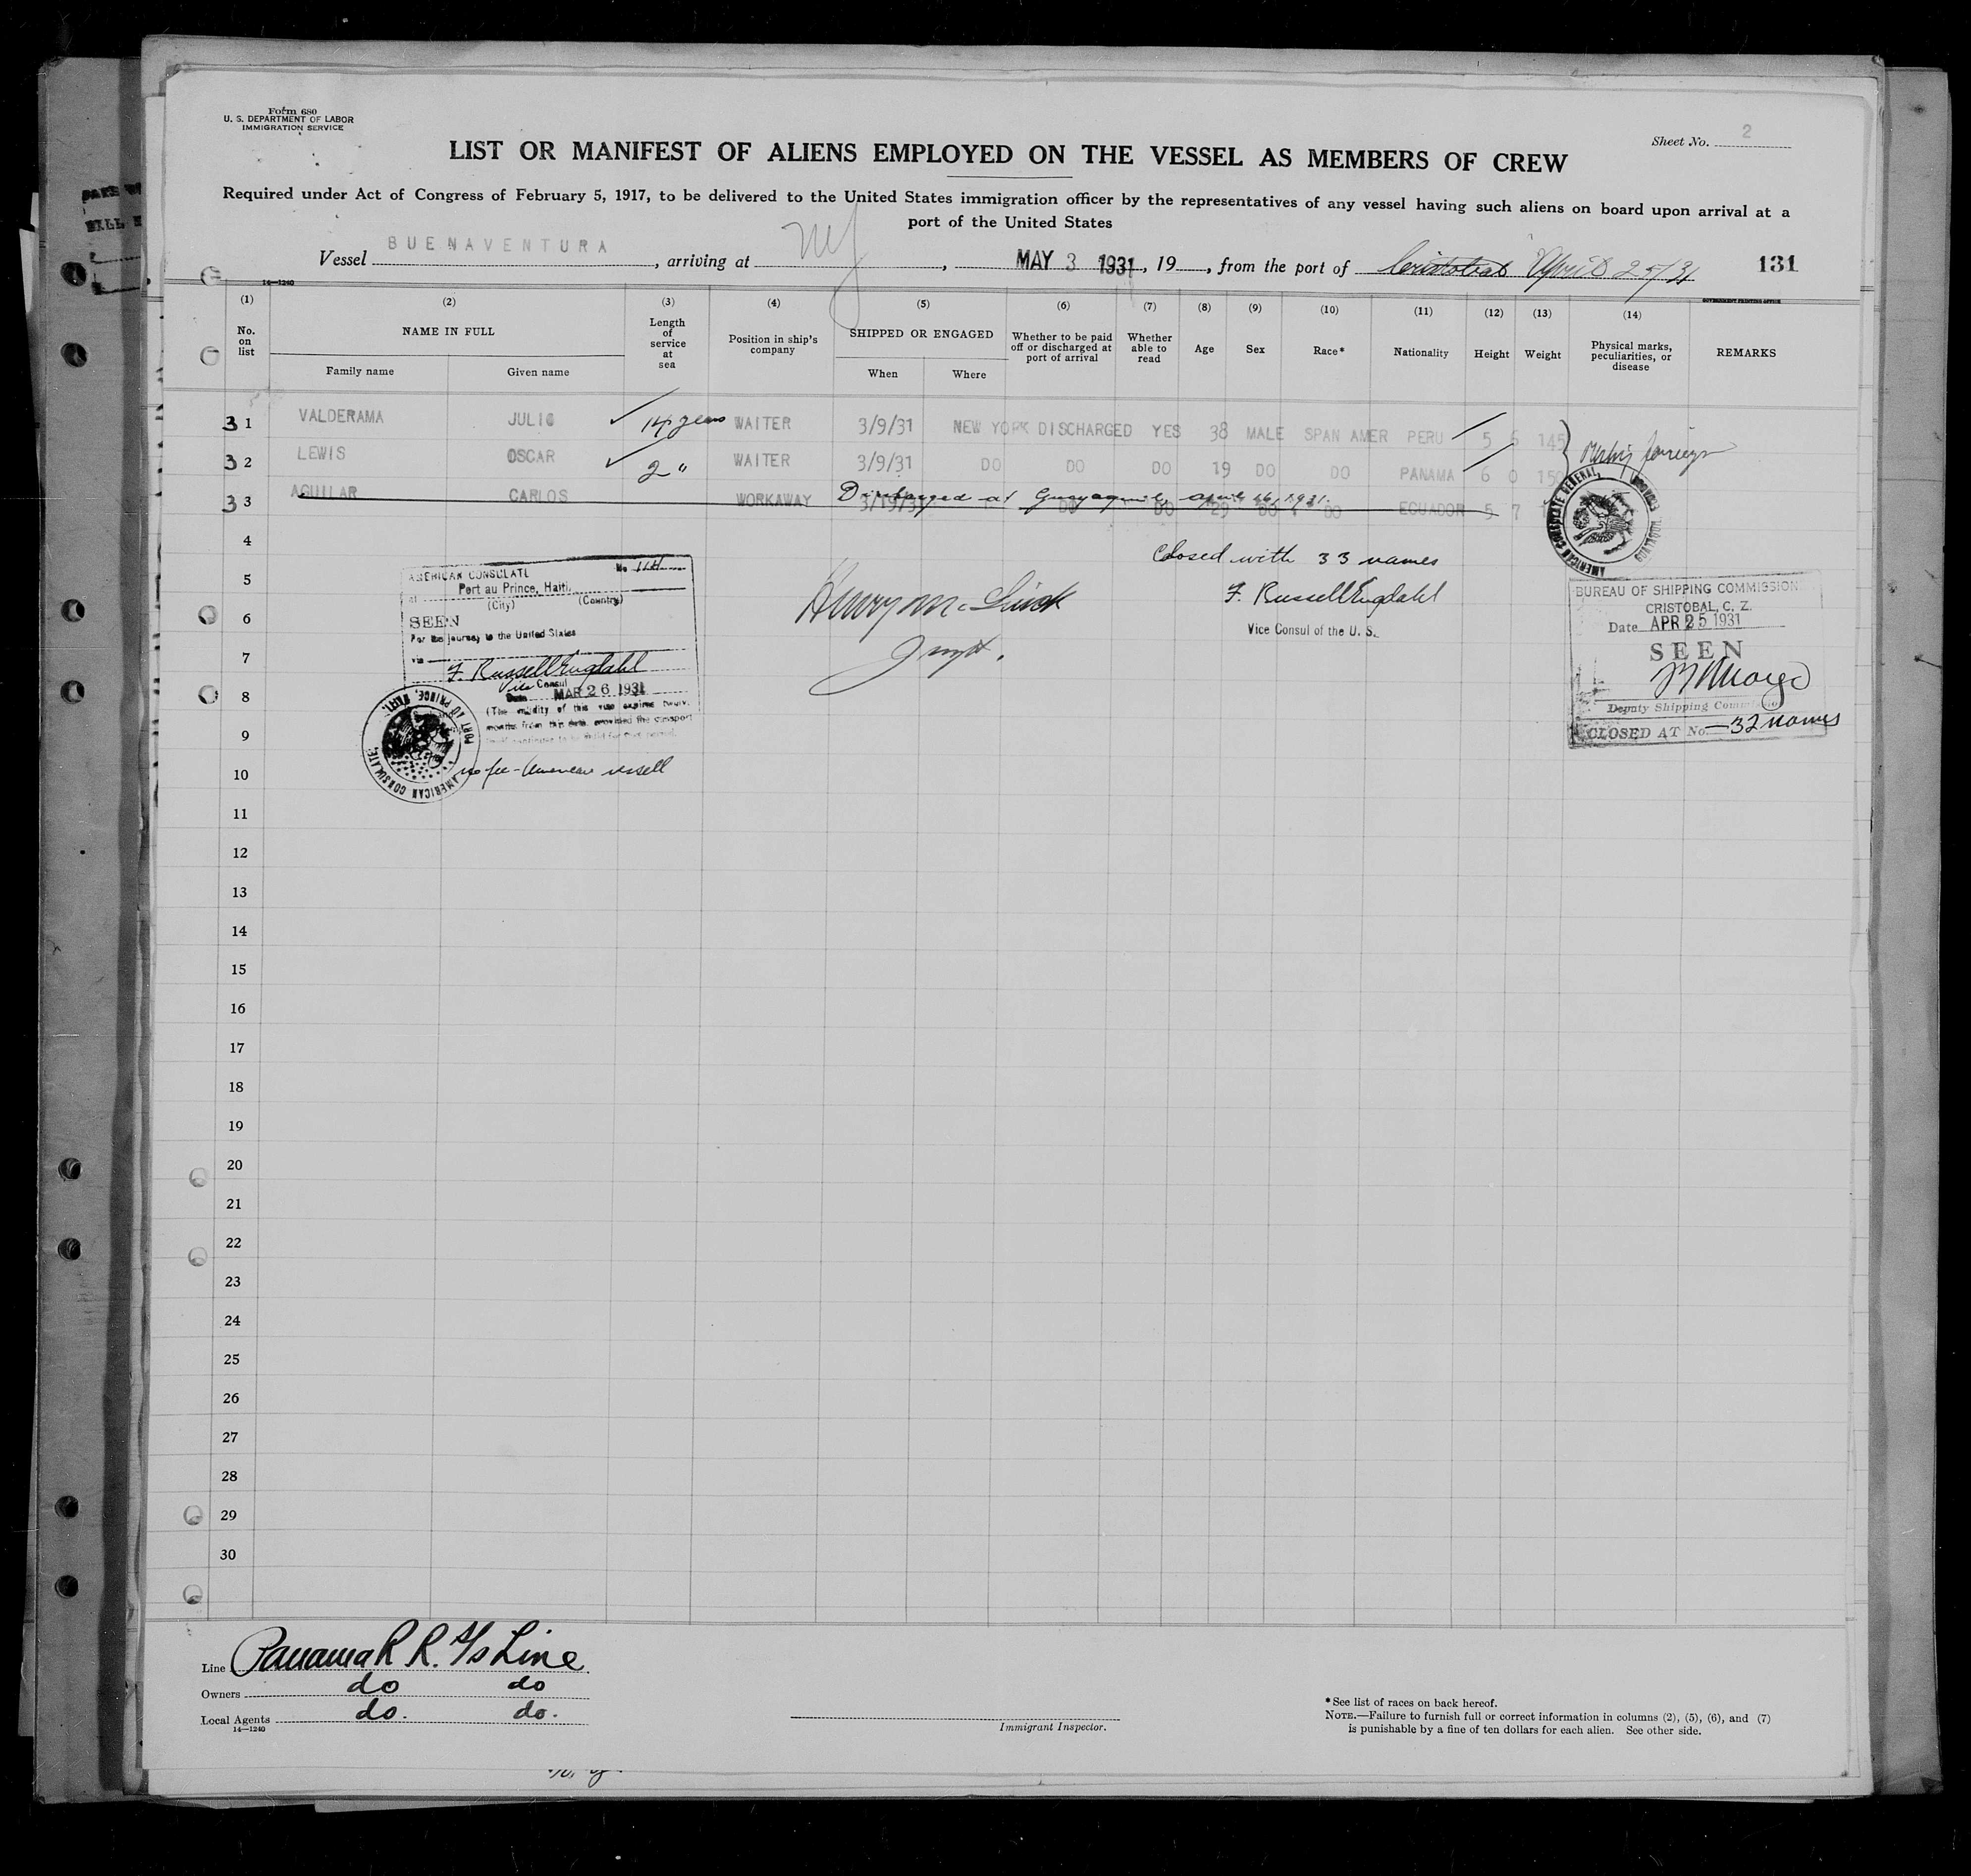 Form 680
U. S. DEPARTMENT OF LABOR
IMMIGRATION SERVICE
Sheet No. 2
LIST OR MANIFEST OF ALIENS EMPLOYED ON THE VESSEL AS MEMBERS OF CREW
Required under Act of Congress of February 5, 1917, to be delivered to the United States immigration officer by the representatives of any vessel having such aliens on board upon arrival at a
port of the United States
Vessel BUENAVENTURA, arriving at NY, MAY 3 1931, 19, from the port of Cristobal April 25/31
131
14—1240
GOVERNMENT PRINTING OFFICE
(1) (2) (3) (4) (5) (6) (7) (8) (9) (10) (11) (12) (13) (14)
No. on list NAME IN FULL Length of service at sea Position in ship's company SHIPPED OR ENGAGED Whether to be paid off or discharged at port of arrival Whether able to read Age Sex Race* Nationality Height Weight Physical marks, peculiarities, or disease REMARKS
Family name Given name When Where
31 VALDERAMA JULIO 14 years WAITER 3/9/31 NEW YORK DISCHARGED YES 38 MALE SPAN AMER PERU 5 6 145
32 LEWIS OSCAR 2 " WAITER 3/9/31 DO DO DO 19 DO DO PANAMA 6 0 150
33 AGUILAR CARLOS WORKAWAY 3/19/31 DO DO 29 DO DO ECUADOR 5 7
Discharged at Guayaquil, April 16, 1931.
AMERICAN CONSULATE GENERAL
4
Closed with 33 names
F. Russell Engdahl
Vice Consul of the U. S.
5
6
7
8
9
10
11
12
13
14
15
16
17
18
19
20
21
22
23
24
25
26
27
28
29
30
AMERICAN CONSULATE No 114
at Port au Prince, Haiti.
(City) (Country)
SEEN
For the journey to the United States
via
F. Russell Engdahl
Vice Consul
Date MAR 26 1931
(The validity of this visa expires twelve
months from this date, provided the passport
AMERICAN CONSULATE PORT AU PRINCE, HAITI.
no fee - American vessell
BUREAU OF SHIPPING COMMISSION
CRISTOBAL, C. Z.
Date APR 25 1931
SEEN
Deputy Shipping Commissio
CLOSED AT No. 32 names
Line Panama R R. S/s Line
Owners do do
Local Agents do. do.
14—1240
Immigrant Inspector.
*See list of races on back hereof.
NOTE.—Failure to furnish full or correct information in columns (2), (5), (6), and (7)
is punishable by a fine of ten dollars for each alien. See other side.